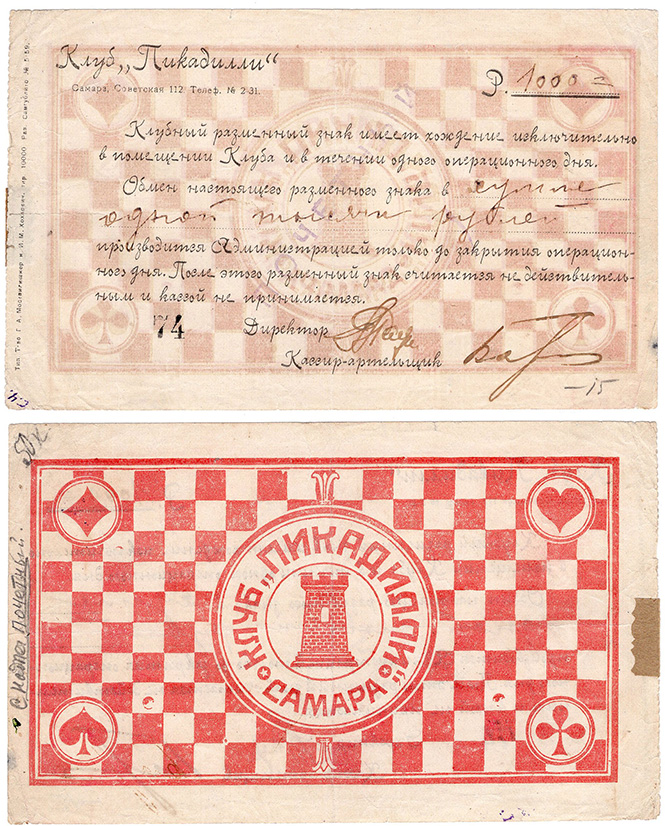 Клуб „Пикадилли“
Самара, Советская 112 Телеф. № 2-31.
Р. 1000=
Клубный разменный знак имеет хождение исключительно
в помещении Клуба и в течении одного операционного дня.
Обмен настоящего разменного знака в сумме
одной тысячи рублей
производится Администрацией только до закрытия операцион-
ного дня. После этого разменный знак считается не действитель-
ным и кассой не принимается.
74
Директор
Кассир-артельщик
-15
50к
КЛУБ „ПИКАДИЛЛИ“
САМАРА